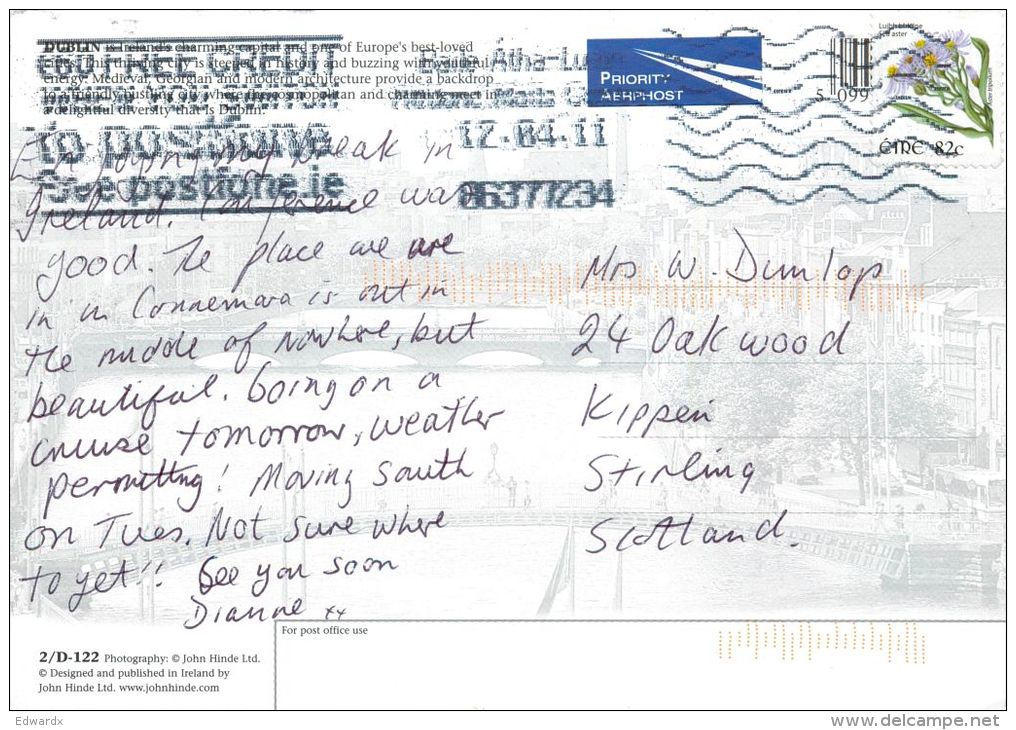 DUBLIN is Ireland's charming capital and one of Europe's best-loved
cities. This thriving city is steeped in history and buzzing with youthful
energy. Medieval, Georgian and modern architecture provide a backdrop
to a friendly bustling city where the cosmopolitan and charming meet in
a delightful diversity that is Dublin.
PRIORITY
AERPHOST
5 099
ÉIRE 82c
to
12-04-11
See postiúne.ie
06377234
Enjoying my break in
Ireland. Conference was
good. The place we are
in in Connemara is out in
the middle of nowhere, but
beautiful. Going on a
cruise tomorrow, weather
permitting! Moving south
on Tues. Not sure where
to yet!! See you soon
Dianne xx
Mrs W. Dunlop
24 Oakwood
Kippen
Stirling
Scotland.
For post office use
2/D-122 Photography: © John Hinde Ltd.
© Designed and published in Ireland by
John Hinde Ltd. www.johnhinde.com
Edwardx
www.delcampe.net